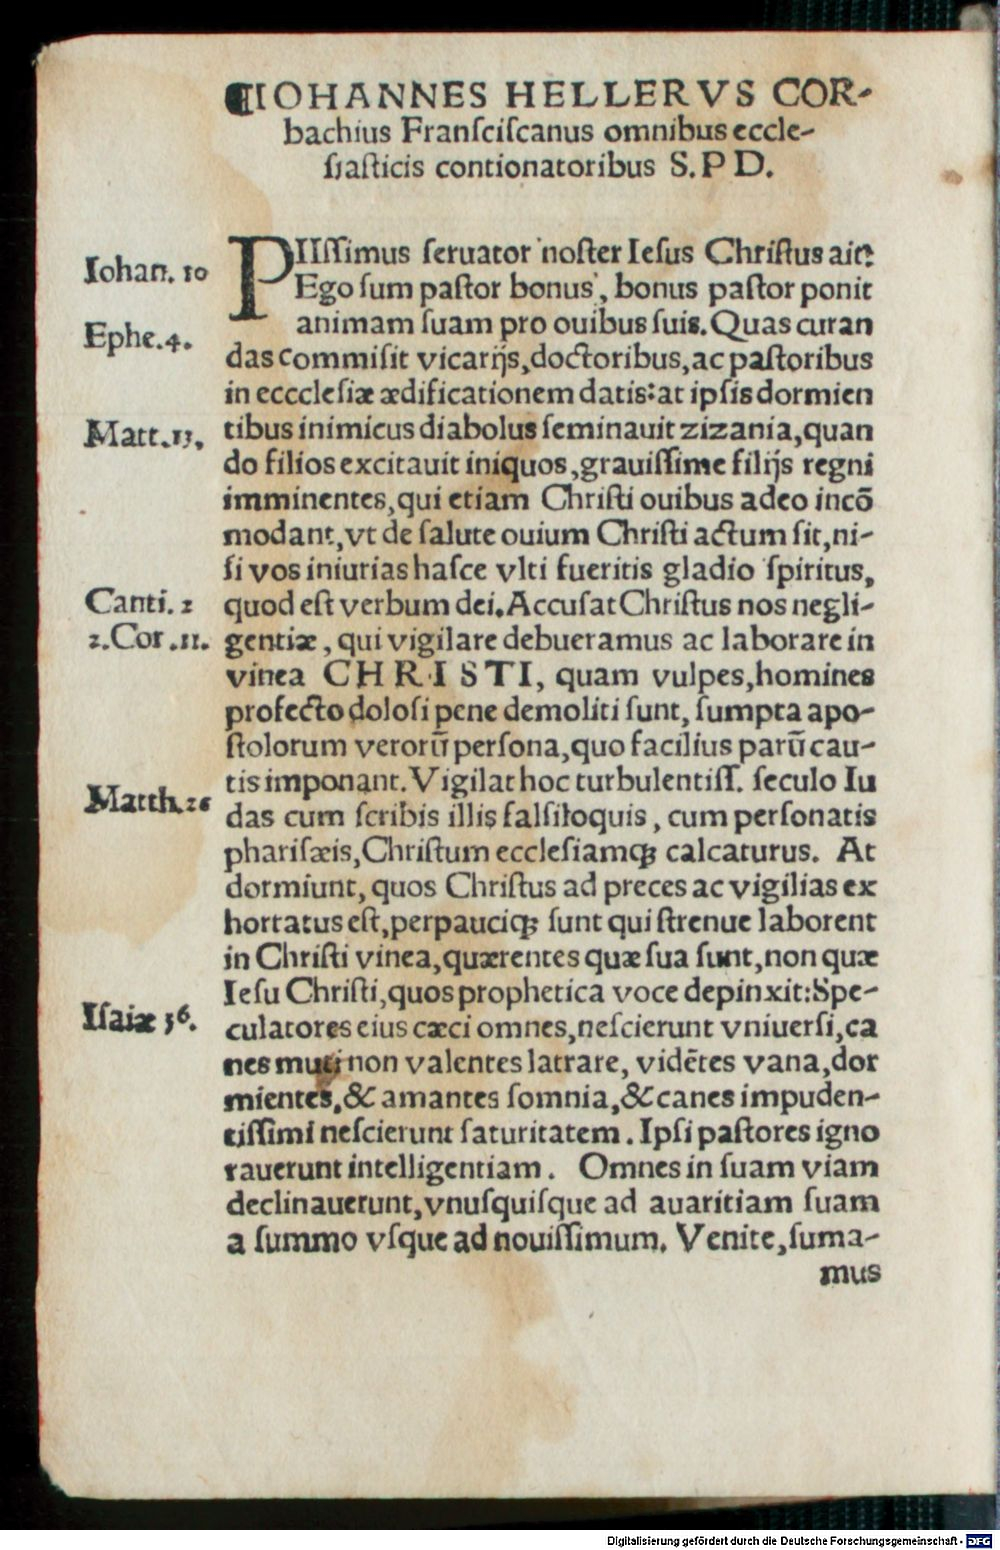 ¶IOHANNES HELLERVS COR-
bachius Franſciſcanus omnibus eccle-
ſiaſticis contionatoribus S. P D.
PIIſſimus ſeruator noſter Ieſus Chriſtus ait:
Iohan. 10
Ego ſum paſtor bonus, bonus paſtor ponit
animam ſuam pro ouibus ſuis. Quas curan
Ephe. 4.
das commiſit vicarijs, doctoribus, ac paſtoribus
in eccclesiæ ædificationem datis: at ipſis dormien
tibus inimicus diabolus ſeminauit zizania, quan
Matt. 13,
do filios excitauit iniquos, grauiſſime filijs regni
imminentes, qui etiam Chriſti ouibus adeo incō
modant, vt de ſalute ouium Chriſti actum ſit, ni-
ſi vos iniurias haſce vlti fueritis gladio ſpiritus,
quod eſt verbum dei. Accuſat Chriſtus nos negli-
Canti. 2
gentiæ, qui vigilare debueramus ac laborare in
2. Cor. 11.
vinea CHRISTI, quam vulpes, homines
profecto doloſi pene demoliti ſunt, ſumpta apo-
ſtolorum verorū perſona, quo facilius parū cau-
tis imponant. Vigilat hoc turbulentiſſ. ſeculo Iu
das cum ſcribis illis falſiloquis, cum perſonatis
Matth. 26
phariſæis, Chriſtum eccleſiamqꝫ calcaturus. At
dormiunt, quos Chriſtus ad preces ac vigilias ex
hortatus eſt, perpauciqꝫ ſunt qui ſtrenue laborent
in Chriſti vinea, quærentes quæ ſua ſunt, non quæ
Ieſu Chriſti, quos prophetica voce depinxit: Spe-
culatores eius cæci omnes, neſcierunt vniuerſi, ca
Iſaiæ 56.
nes muti non valentes latrare, vidētes vana, dor
mientes, & amantes ſomnia, & canes impuden-
tiſſimi neſcierunt ſaturitatem. Ipſi paſtores igno
rauerunt intelligentiam. Omnes in ſuam viam
declinauerunt, vnuſquiſque ad auaritiam ſuam
a ſummo vſque ad nouiſſimum. Venite, ſuma-
mus
Digitalisierung gefördert durch die Deutsche Forschungsgemeinschaft - DFG